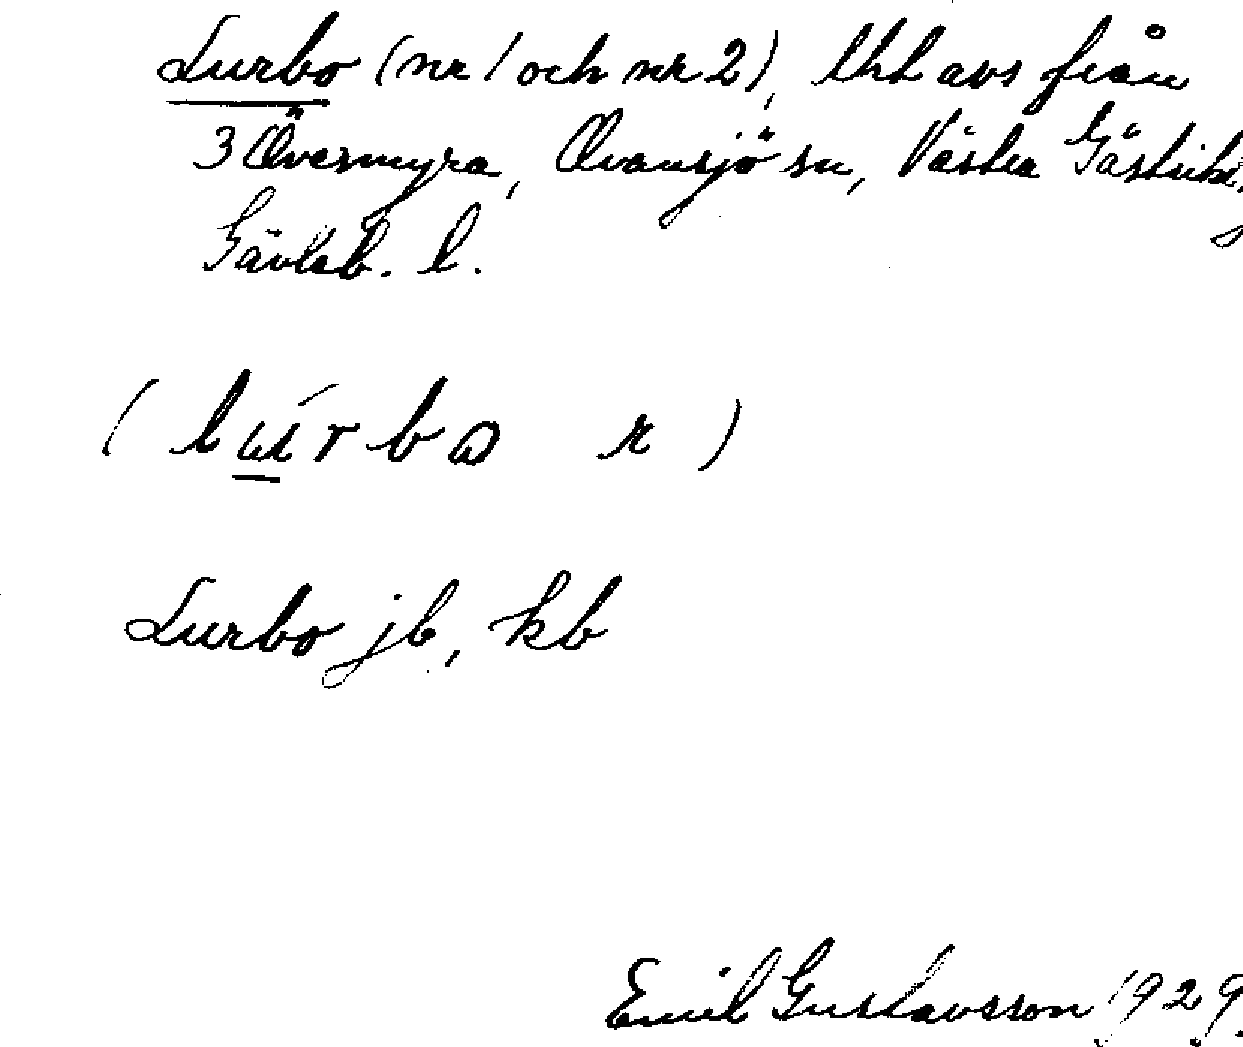 Lurbo (nr 1 och nr 2), lht avs från
3 Övermyra, Ovansjö sn, Västra Gästrikl.
Gävleb. l.
( lú̲rbω r )
Lurbo jb, kb
Emil Gustavsson 1929.